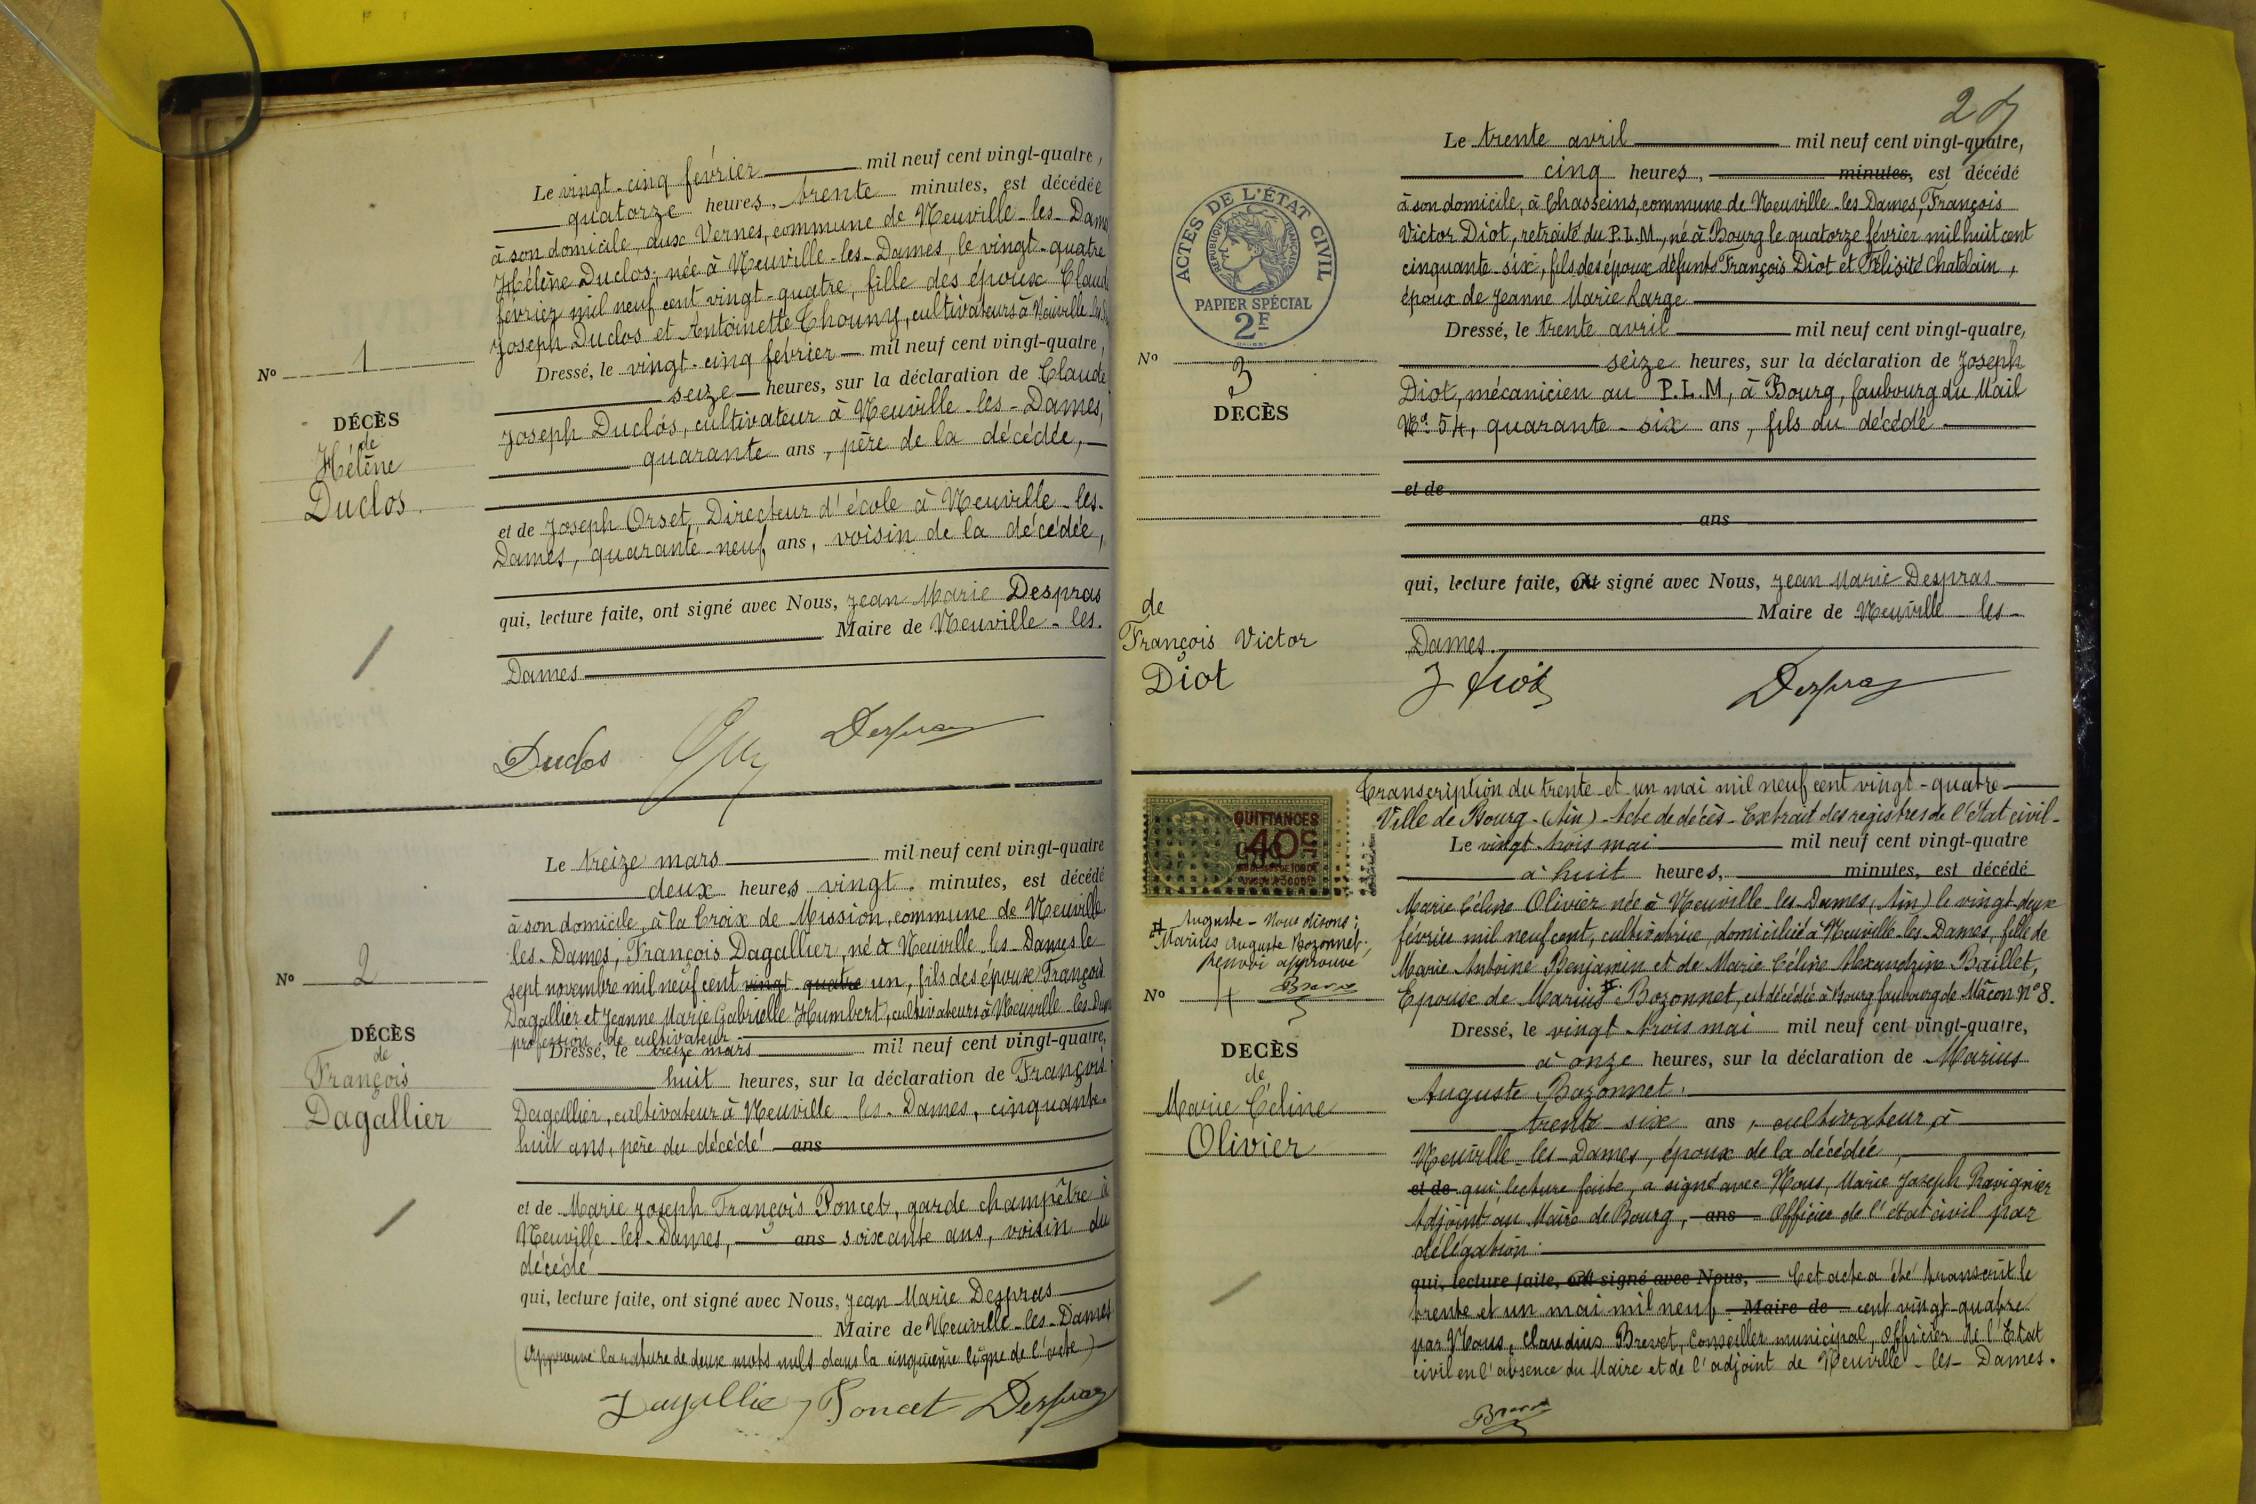 Le vingt-cinq février mil neuf cent vingt-quatre,
quatorze heures, trente minutes, est décédée
à son domicile, aux Vernes, commune de Neuville-les-Dames
Hélène Duclos, née à Neuville-les-Dames, le vingt-quatre
février mil neuf cent vingt-quatre, fille des époux Claude
Joseph Duclos et Antoinette Chouny, cultivateurs à Neuville les
Dressé, le vingt-cinq février mil neuf cent vingt-quatre,
seize heures, sur la déclaration de Claude
Joseph Duclos, cultivateur à Neuville-les-Dames,
quarante ans, père de la décédée,
et de Joseph Orset, Directeur d'école à Neuville-les-
Dames, quarante-neuf ans, voisin de la décédée,
qui, lecture faite, ont signé avec Nous, Jean Marie Despras
Maire de Neuville-les-
Dames
Nº 1
DÉCÈS
de
Hélène
Duclos.
Duclos Despras
Le treize mars mil neuf cent vingt-quatre
deux heures vingt minutes, est décédé
à son domicile, à la Croix de Mission, commune de Neuville
les-Dames, François Dagallier, né à Neuville les-Dames le
sept novembre mil neuf cent vingt quatre un, fils des époux François
Dagallier et Jeanne Marie Gabrielle Humbert, cultivateurs à Neuville-les-Dames
profession de cultivateur
Dressé, le treize mars mil neuf cent vingt-quatre,
huit heures, sur la déclaration de François
Dagallier, cultivateur à Neuville-les-Dames, cinquante-
huit ans, père du décédé ans
et de Marie Joseph François Poncet, garde champêtre à
Neuville-les-Dames, ans soixante ans, voisin du
décédé
qui, lecture faite, ont signé avec Nous, Jean-Marie Despras
Maire de Neuville-les-Dames
(Approuvé la rature de deux mots nuls dans la cinquième ligne de l'acte)
Nº 2
DÉCÈS
de
François
Dagallier
Dagallier Poncet Despras
27
ACTES DE L'ÉTAT CIVIL
RÉPUBLIQUE FRANÇAISE
PAPIER SPÉCIAL
2F
Nº 3
DECÈS
de
François Victor
Diot
Le trente avril mil neuf cent vingt-quatre,
cinq heures, minutes, est décédé
à son domicile, à Chasseins, commune de Neuville-les Dames, François
Victor Diot, retraité du P.L.M., né à Bourg le quatorze février mil huit cent
cinquante-six, fils des époux défunts François Diot et Félisité Chatelain,
époux de Jeanne Marie Large
Dressé, le trente avril mil neuf cent vingt-quatre,
seize heures, sur la déclaration de Joseph
Diot, mécanicien au P.L.M, à Bourg, faubourg du Mail
Nº 54, quarante-six ans, fils du décédé
et de
ans
qui, lecture faite, ont signé avec Nous, Jean Marie Despras
Maire de Neuville-les-
Dames.
J Diot Despras
Transcription du trente-et-un mai mil neuf cent vingt-quatre
Ville de Bourg-(Ain)-Acte de décès-Extrait des registres de l'état civil-
Le vingt trois mai mil neuf cent vingt-quatre
à huit heures, minutes, est décédé
Marie Céline Olivier née à Neuville-les-Dames, (Ain) le vingt-deux
février mil neuf cent, cultivatrice, domiciliée à Neuville-les-Dames, fille de
Marie Antoine Benjamin et de Marie Céline Alexandrine Baillet,
Epouse de Marius # Bozonnet, est décédée à Bourg faubourg de Mâcon Nº 8.
Dressé, le vingt trois mai mil neuf cent vingt-quatre,
à onze heures, sur la déclaration de Marius
Auguste Bozonnet,
trente-six ans, cultivateur à
Neuville-les-Dames, époux de la décédée,
et de qui, lecture faite, a signé avec Nous, Marie Joseph Ravignier
Adjoint au Maire de Bourg, ans Officier de l'état civil par
délégation.
qui, lecture faite, ont signé avec Nous, Cet acte a été transcrit le
trente et un mai mil neuf Maire de cent vingt-quatre
par Nous, Claudius Brevet, Conseiller municipal, Officier de l'Etat
civil en l'absence du Maire et de l'adjoint de Neuville-les-Dames.
QUITTANCES
40c
# Auguste - Nous disons:
Marius Auguste Bozonnet.
Renvoi approuvé
Brevet
Nº 4
DECÈS
de
Marie Céline
Olivier
Brevet